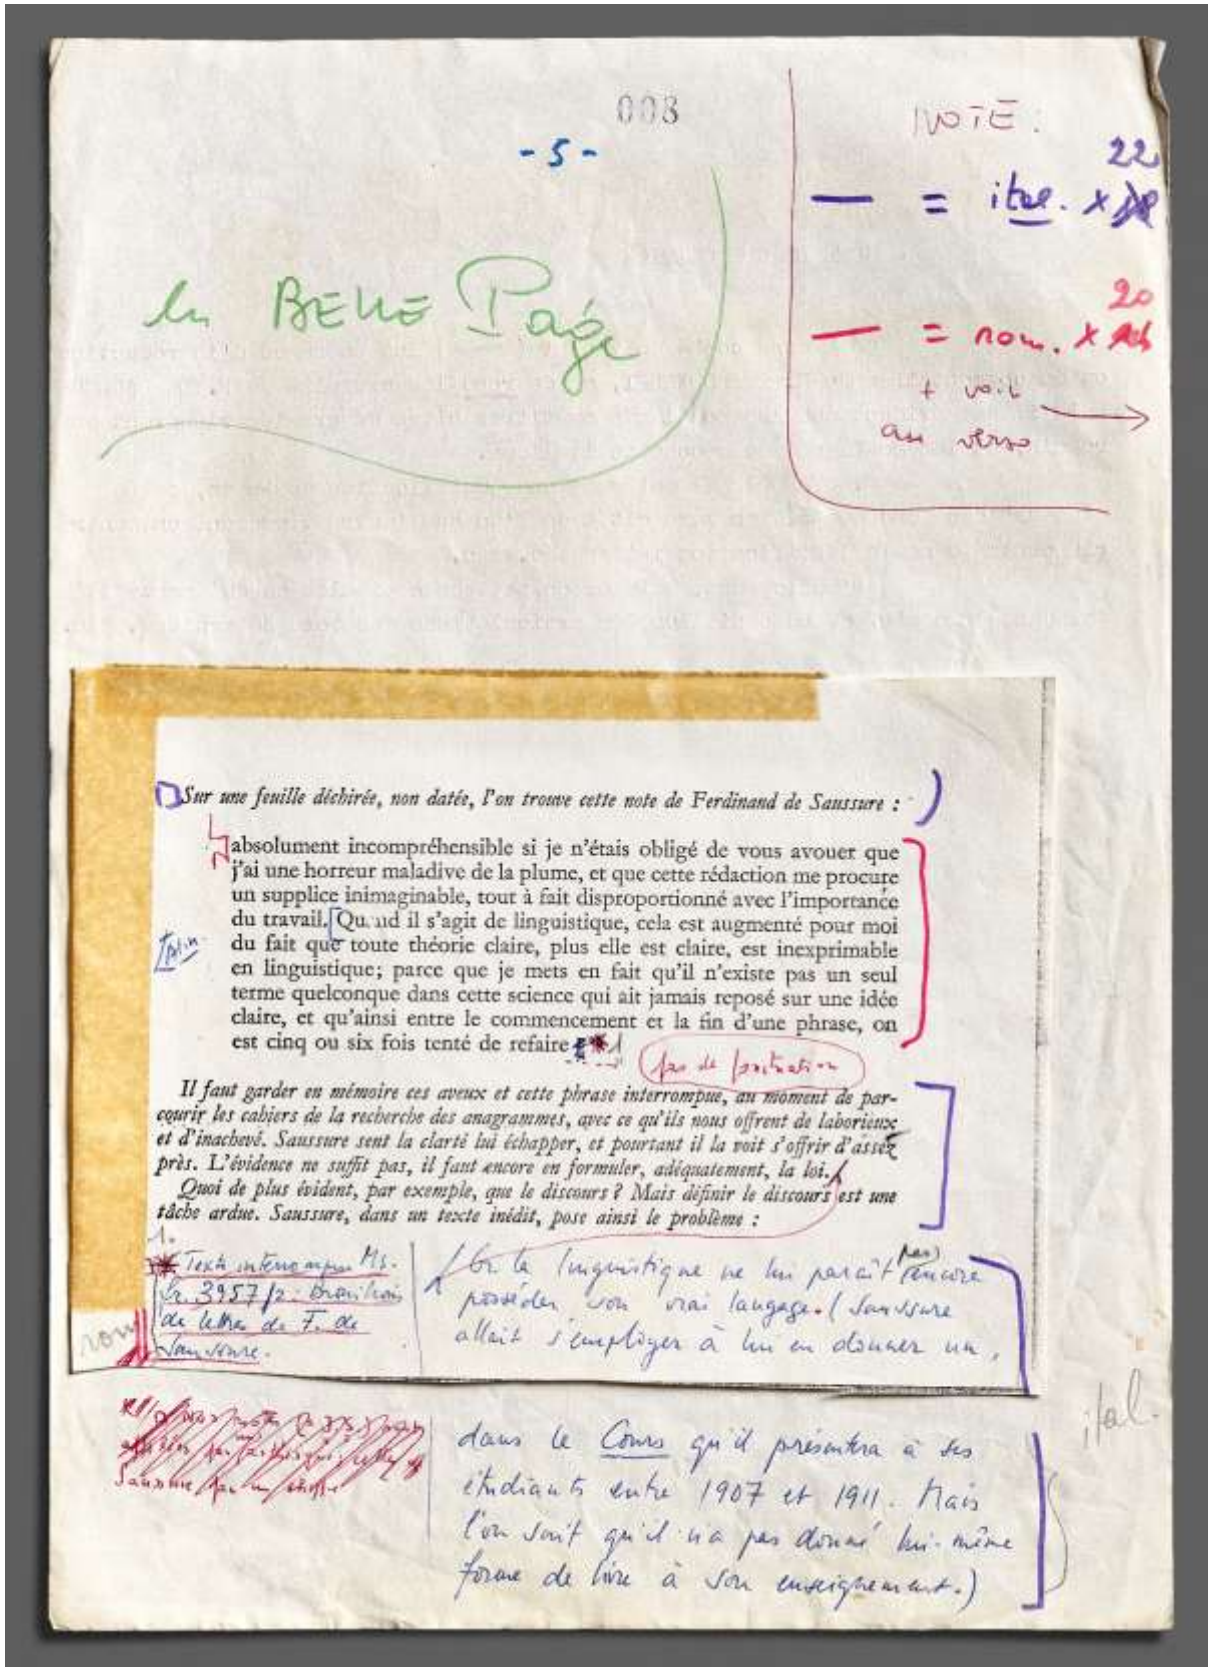 008
- 5 -
NOTE :
22
— = ital. x
20
— = rom. x
+ voir
au verso
en BELLE Page
Sur une feuille déchirée, non datée, l'on trouve cette note de Ferdinand de Saussure :
absolument incompréhensible si je n'étais obligé de vous avouer que
j'ai une horreur maladive de la plume, et que cette rédaction me procure
un supplice inimaginable, tout à fait disproportionné avec l'importance
du travail. Quand il s'agit de linguistique, cela est augmenté pour moi
du fait que toute théorie claire, plus elle est claire, est inexprimable
en linguistique; parce que je mets en fait qu'il n'existe pas un seul
terme quelconque dans cette science qui ait jamais reposé sur une idée
claire, et qu'ainsi entre le commencement et la fin d'une phrase, on
est cinq ou six fois tenté de refaire
pas de ponctuation
Il faut garder en mémoire ces aveux et cette phrase interrompue, au moment de par-
courir les cahiers de la recherche des anagrammes, avec ce qu'ils nous offrent de laborieux
et d'inachevé. Saussure sent la clarté lui échapper, et pourtant il la voit s'offrir d'assez
près. L'évidence ne suffit pas, il faut encore en formuler, adéquatement, la loi.
Quoi de plus évident, par exemple, que le discours ? Mais définir le discours est une
tâche ardue. Saussure, dans un texte inédit, pose ainsi le problème :
1.
Texte interrompu Ms.
fr. 3957/2 : brouillons
de lettres de F. de
Saussure.
rom
Or la linguistique ne lui paraît pas encore
posséder son vrai langage. (Saussure
allait s'employer à lui en donner un,
dans le Cours qu'il présentera à ses
étudiants entre 1907 et 1911. Mais
l'on sait qu'il n'a pas donné lui-même
forme de livre à son enseignement.)
ital.